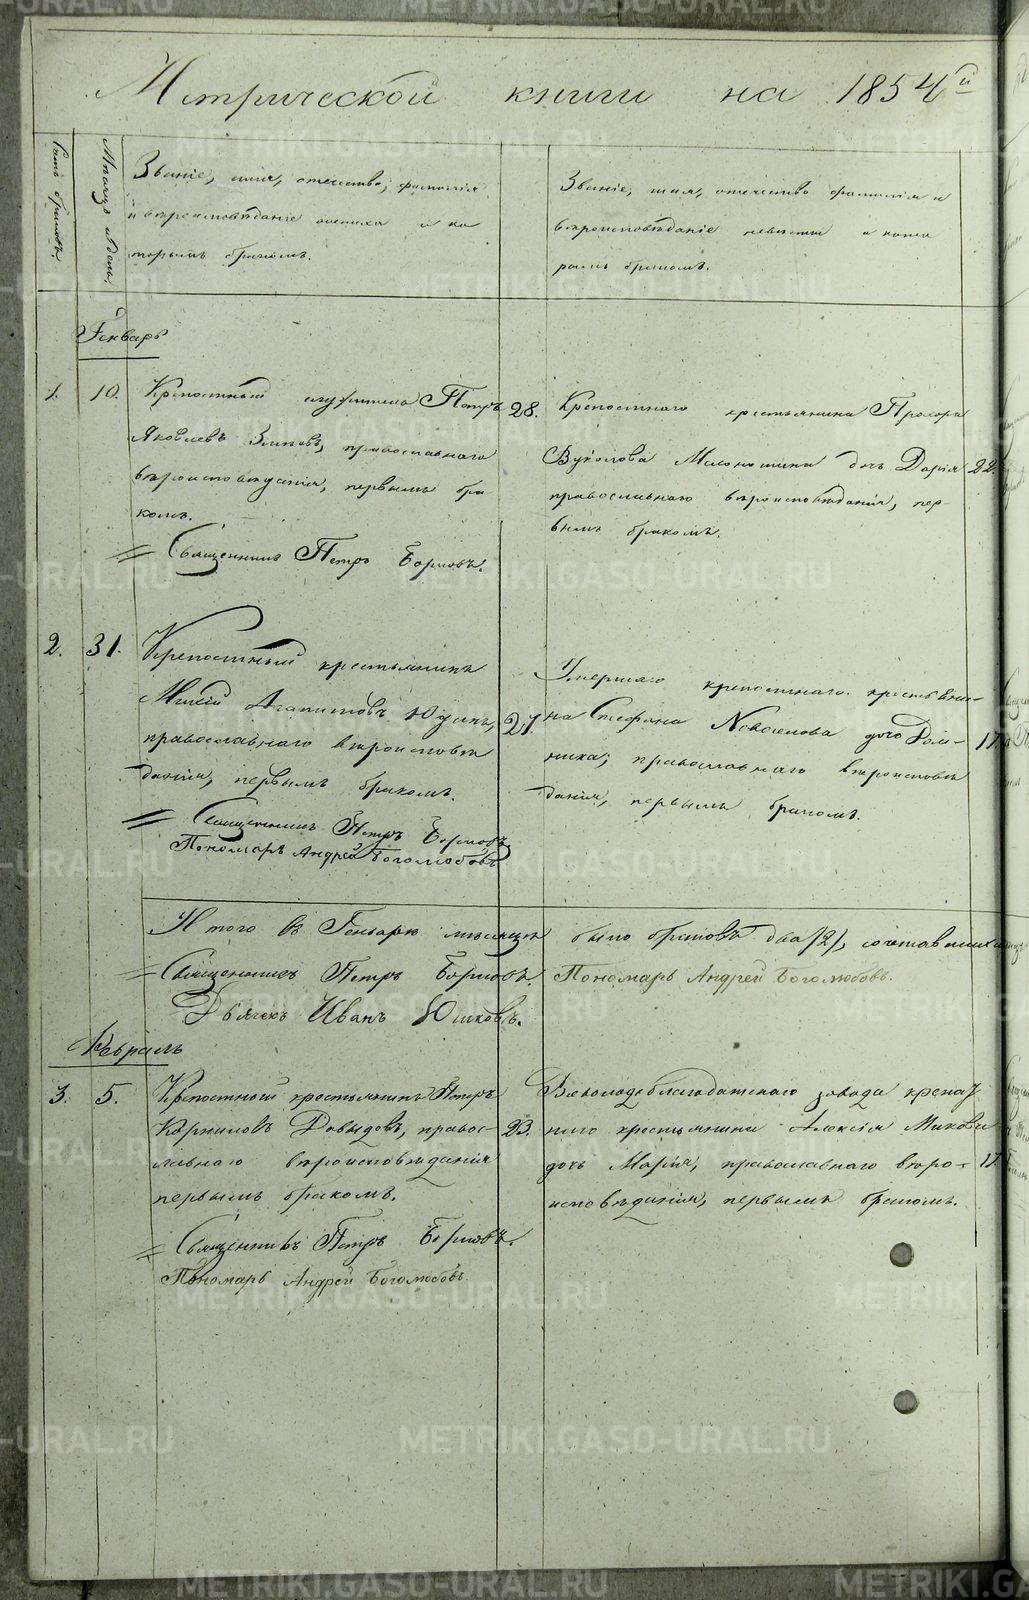 Метрической книги на 1854й
Счетъ браковъ.
Мѣсяцъ и день.
Званіе, имя, отчество, фамилія
и вѣроисповѣданіе жениха и ко
торымъ бракомъ.
Званіе, имя, отчество фамилія и
вѣроисповѣданіе невѣсты и кото
рымъ бракомъ.
Генварь
1. 10. Крепостный служитель Петръ 28.
Яковлевъ Зыковъ, православнаго
вѣроисповѣданія, первымъ бра
комъ.
Священникъ Петръ Борисовъ.
Крепостнаго крестьянина Прохора
Вуколова дочь Дарія 22.
православнаго вѣроисповѣданія, пер-
вымъ бракомъ.
2. 31. Крепостный крестьянинъ
Агапитовъ 21.
православнаго вѣроисповѣ
данія, первымъ бракомъ.
Священникъ Петръ Борисовъ
Пономарь Андрей Боголюбовъ
Умершаго крепостнаго крестьяни-
на Стефана Новоселова дочь Дом- 17.
ника, православнаго вѣроисповѣ
данія, первымъ бракомъ.
Итого въ Генварѣ мѣсяцѣ было браковъ два /2/,
Священникъ Петръ Борисовъ. Пономарь Андрей Боголюбовъ.
Дьячекъ Иванъ Юшковъ.
Февраль
3. 5. Крепостный крестьянинъ Петръ
Корниловъ Давыдовъ, правос- 23.
лавнаго вѣроисповѣданія
первымъ бракомъ.
Священникъ Петръ Борисовъ.
Пономарь Андрей Боголюбовъ
Всеволодоблагодатскаго завода крепост
наго крестьянина Алексія
дочь Марія, православнаго вѣро- 17.
исповѣданія, первымъ бракомъ.
METRIKI.GASO-URAL.RU